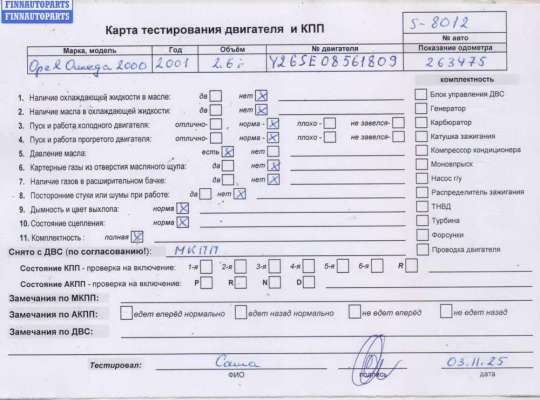 FINNAUTOPARTS
FINNAUTOPARTS
Карта тестирования двигателя и КПП
S-8012
№ авто
Марка, модель Год Объём № двигателя Показание одометра
Opel Omega 2000 2001 2.6i Y26SE08561809 263475
комплектность
1. Наличие охлаждающей жидкости в масле: да нет
2. Наличие масла в охлаждающей жидкости: да нет
3. Пуск и работа холодного двигателя: отлично- норма - плохо - не завелся-
4. Пуск и работа прогретого двигателя: отлично- норма - плохо - не завелся-
5. Давление масла: есть нет
6. Картерные газы из отверстия масляного щупа: да нет
7. Наличие газов в расширительном бачке: да нет
8. Посторонние стуки или шумы при работе: да нет
9. Дымность и цвет выхлопа: норма
10. Состояние сцепления: норма
11. Комплектность : полная
Блок управления ДВС
Генератор
Карбюратор
Катушка зажигания
Компрессор кондиционера
Моновпрыск
Насос г/у
Распределитель зажигания
ТНВД
Турбина
Форсунки
Проводка двигателя
Снято с ДВС (по согласованию!): МКПП
Состояние КПП - проверка на включение: 1-я 2-я 3-я 4-я 5-я 6-я R
Состояние АКПП - проверка на включение: P R N D
Замечания по МКПП:
Замечания по АКПП: едет вперёд нормально едет назад нормально не едет вперёд не едет назад
Замечания по ДВС:
Тестировал: Саша 03.11.25
ФИО подпись дата